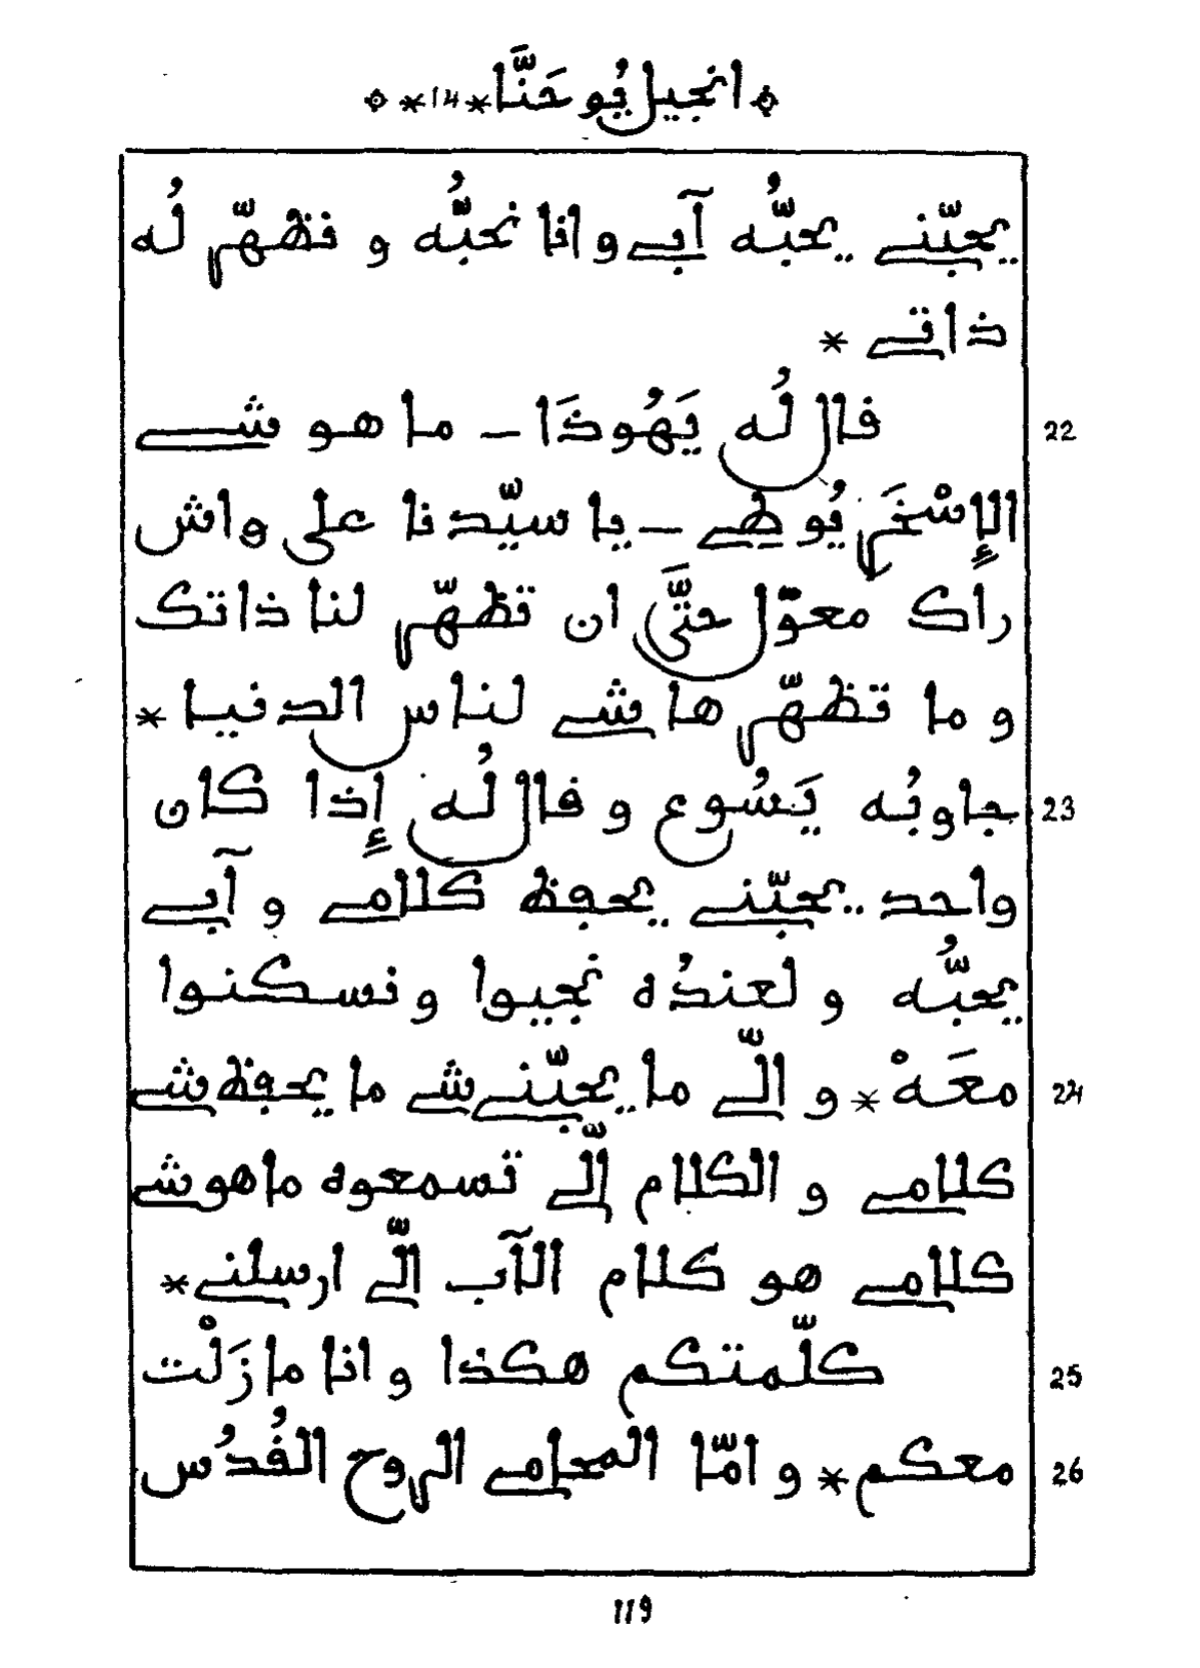 انجيل يُوحَنَّا * 14 *
يحبّني يحبُّه آبي و انا نحبُّه و نظهّر لُه
ذاتي *
22 قال لُه يَهُوذَا — ما هو شي
الإِسْخَرْيُوطي — يا سيّدنا على واش
راك معوّل حتَّى ان تظهّر لنا ذاتك
و ما تظهّرها شي لناس الدنيا *
23 جاوبُه يَسُوع و قال لُه إِذا كان
واحد يحبّني يحفظ كلامي و آبي
يحبُّه و لعندُه نجيوا و نسكنوا
24 معَهْ * و الّي ما يحبّني شي ما يحفظ شي
كلامي و الكلام الّي تسمعوه ماهو شي
كلامي هو كلام الآب الّي ارسلني *
25 كلّمتكم هكذا و انا ما زَلْت
26 معكم * و امّا المحامي الروح القُدُس
119